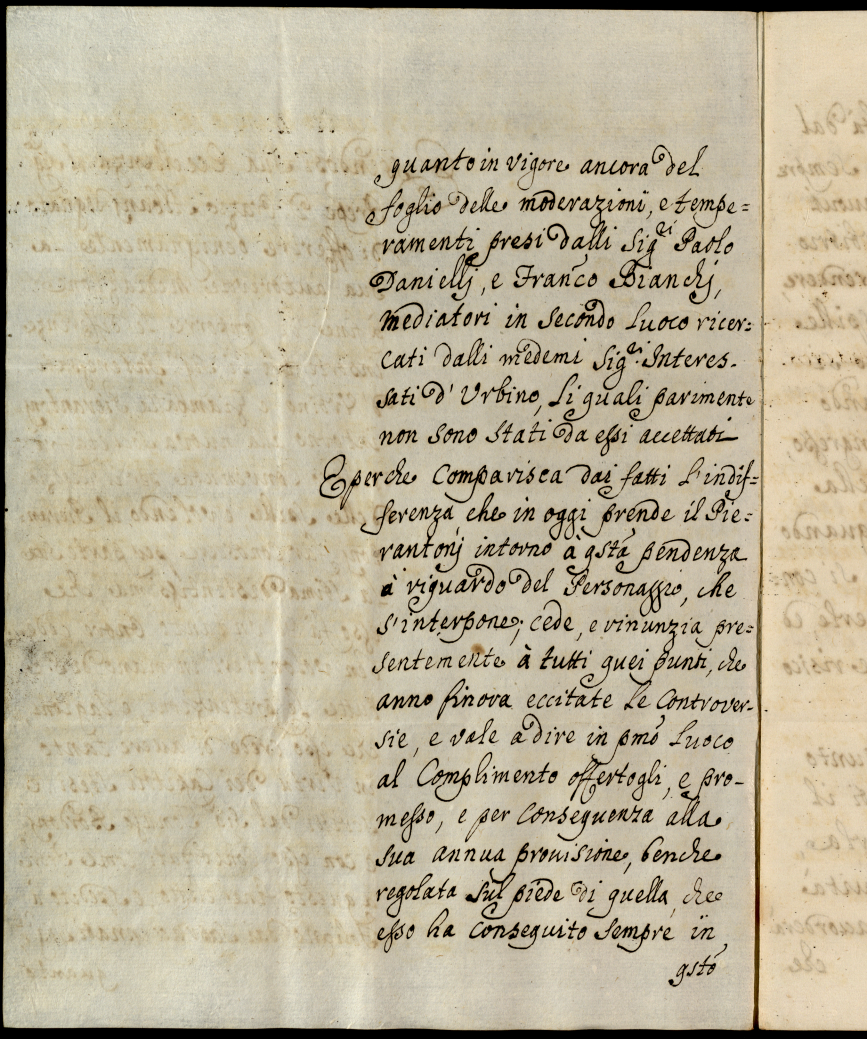 quanto in vigore ancora del
foglio delle moderazioni, e tempe=
ramenti presi dalli Sig.ri Paolo
Danielli, e Franco Bianchj,
mediatori in secondo luoco ricer=
cati dalli medemi Sig.ri Interes-
sati d'Urbino, li quali parimente
non sono stati da essi accettati
E perche comparisca dai fatti l'indif=
ferenza, che in oggi prende il Pie=
rantonj intorno à qsta pendenza
à riguardo del Personaggio, che
s'interpone; cede, e rinunzia pre=
sentemente à tutti quei punti, che
anno finora eccitate le controver-
sie, e vale a dire in pmo luoco
al Complimento offertogli, e pro-
messo, e per conseguenza alla
sua annua provisione, benche
regolata sul piede di quella, che
esso ha conseguito sempre in
qsto